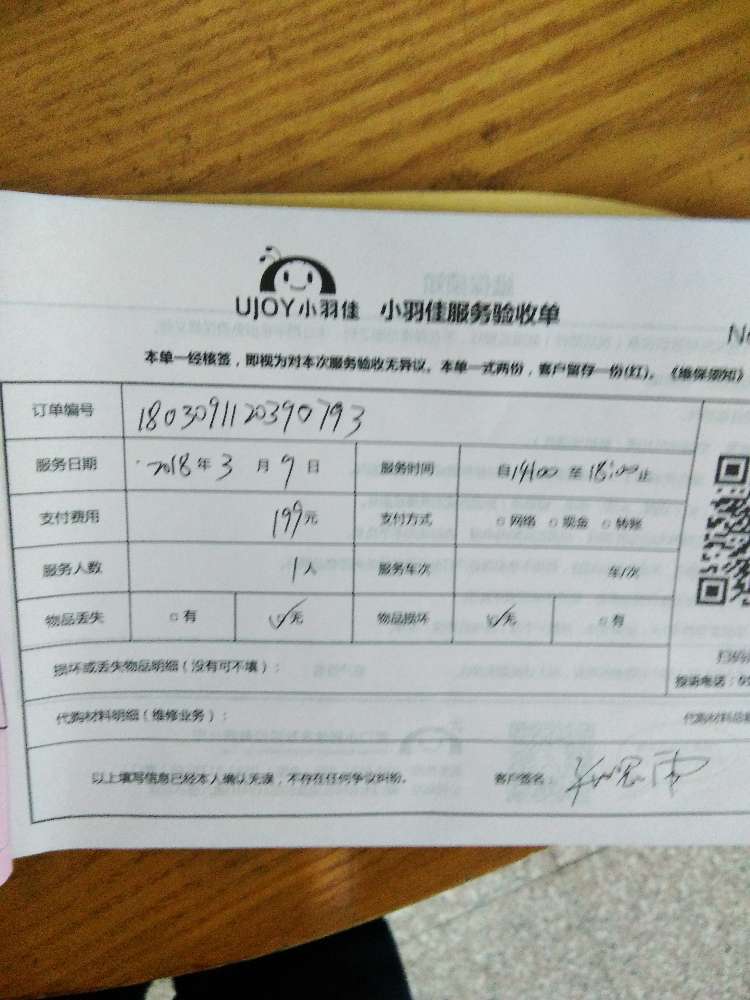 UJOY小羽佳 小羽佳服务验收单
本单一经核签，即视为对本次服务验收无异议。本单一式两份，客户留存一份(红)。《维保须知》
订单编号 1803091120390793
服务日期 2018年3月9日 服务时间 自14:00至18:00止
支付费用 199元 支付方式 □网络 □现金 □转账
服务人数 1人 服务车次 车/次
物品丢失 □有 ☑无 物品损坏 ☑无 □有
损坏或丢失物品明细（没有可不填）：
投诉电话：
代购材料明细（维修业务）： 代购材料总
以上填写信息已经本人确认无误，不存在任何争议纠纷。 客户签名：